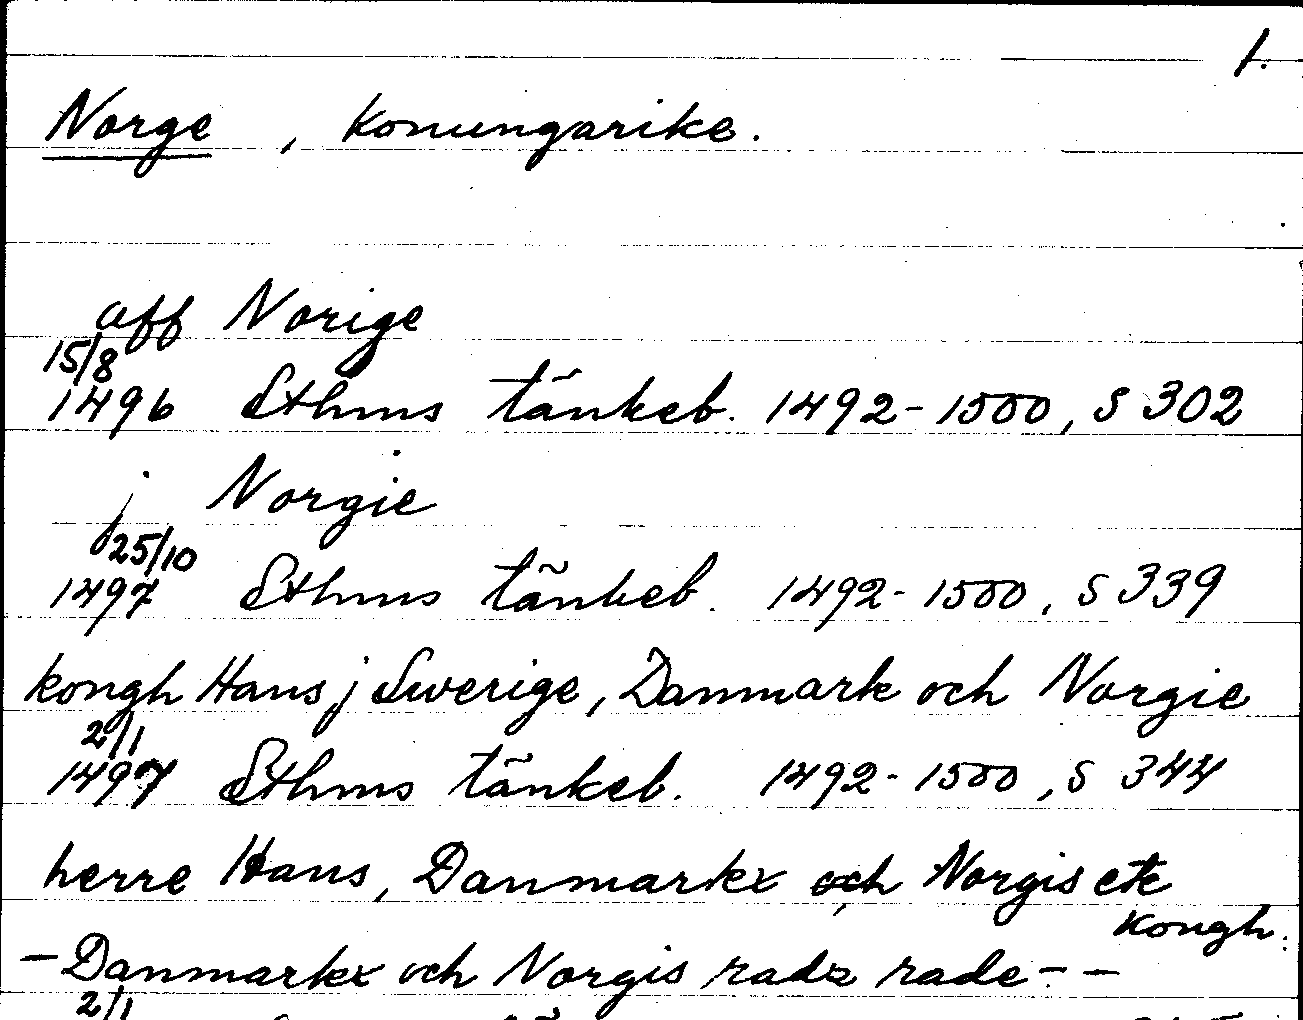 1.
Norge , konungarike.
aff Norige
15/8
1496 Sthms tänkeb. 1492-1500, S 302
j Norgie
25/10
1497 Sthms tänkeb. 1492-1500, S 339
kongh Hans j Swerige, Danmark och Norgie
2/1
1497 Sthms tänkeb. 1492-1500, S 344
herre Hans, Danmarkx och Norgis etc
kongh.
- Danmarkx och Norgis radz rade - -
2/1